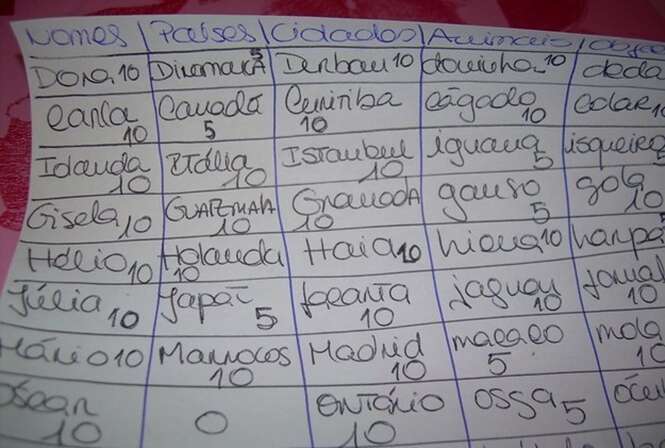 Nomes Países Cidades Animais
Dora 10 Dinamarca 5 Durban 10 doninha 10 deda
Carla 10 Canadá 5 Curitiba 10 cágado 10 colar 1
Iolanda 10 Itália 10 Istambul 10 iguana 5 isqueiro 5
Gisela 10 GUATEMALA 10 Granada 10 ganso 5 gola 10
Hélio 10 Holanda 10 Haia 10 hiena 10 harpa
Júlia 10 Japão 5 Jacarta 10 jaguar 10 jornal 10
Mário 10 Marrocos 10 Madrid 10 macaco 5 mola 10
Óscar 10 0 Ontário 10 ossa 5 ócul